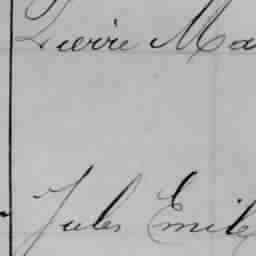 Pierre Ma
Jules Emile